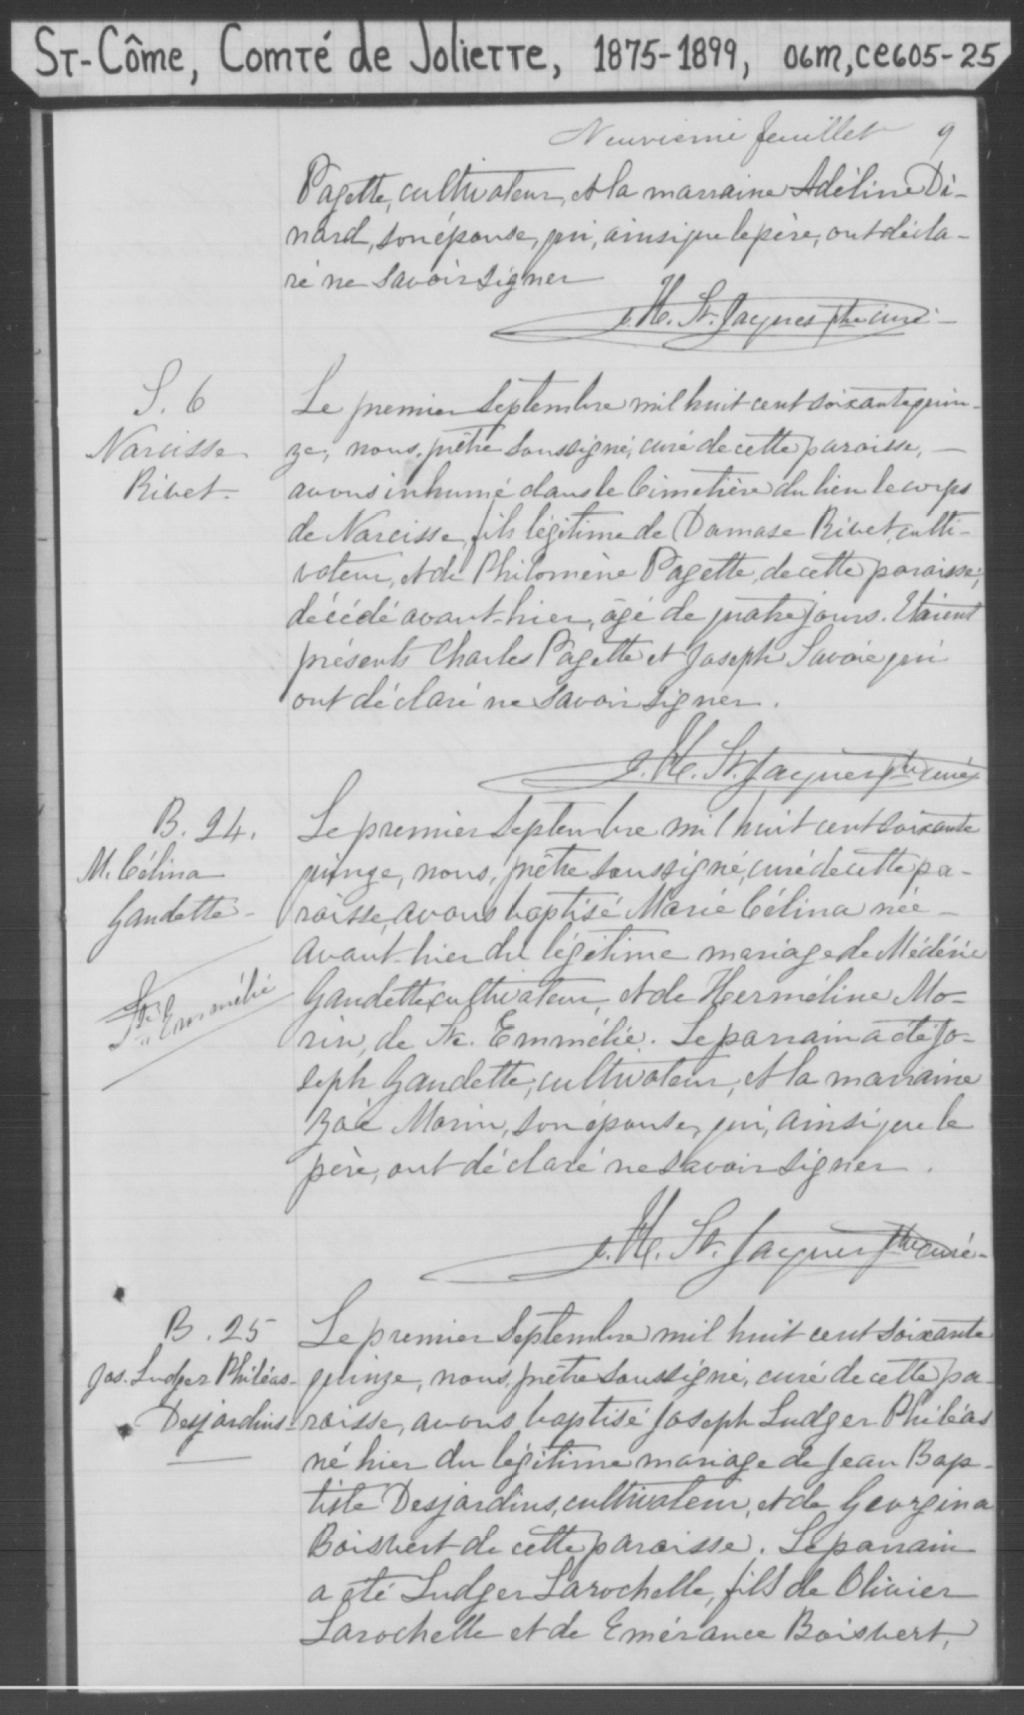 St-Côme, Comté de Joliette, 1875-1899, 06M,CE605-25
Neuvieme feuillet 9
Pagette, cultivateur, et la marraine Adéline Di-
nard, son épouse, qui, ainsi que le père, ont décla-
ré ne savoir signer
J. H. St. Jacques ptre curé
S. 6
Narcisse
Rivet.
Le premier Septembre mil huit cent soixante quin-
ze, nous, prêtre soussigné, curé de cette paroisse, —
avons inhumé dans le Cimetière du lieu le corps
de Narcisse, fils légitime de Damase Rivet, culti-
vateur, et de Philomène Pagette, de cette paroisse,
décédé avant-hier, âgé de quatre jours. Etaient
présents Charles Pagette et Joseph Savoie qui
ont déclaré ne savoir signer.
J. H. St. Jacques ptre curé
B. 24.
M. Célina
Gaudette -
Ste Emmélie
Le premier Septembre mil huit cent soixante
quinze, nous, prêtre soussigné, curé de cette pa-
roisse, avons baptisé Marie Célina née -
avant-hier du légitime mariage de Médéric
Gaudette, cultivateur, et de Herméline Mo-
rin, de Ste. Emmélie. Le parrain a été Jo-
seph Gaudette, cultivateur, et la marraine
Zoé Morin, son épouse, qui, ainsi que le
père, ont déclaré ne savoir signer.
J. H. St. Jacques ptre curé -
B. 25
Jos. Ludger Philéas
Desjardins -
Le premier Septembre mil huit cent soixante
quinze, nous, prêtre soussigné, curé de cette pa-
roisse, avons baptisé Joseph Ludger Philéas
né hier du légitime mariage de Jean Bap-
tiste Desjardins, cultivateur, et de Georgina
Boisvert de cette paroisse. Le parrain
a été Ludger Larochelle, fils de Olivier
Larochelle et de Emérance Boisvert,